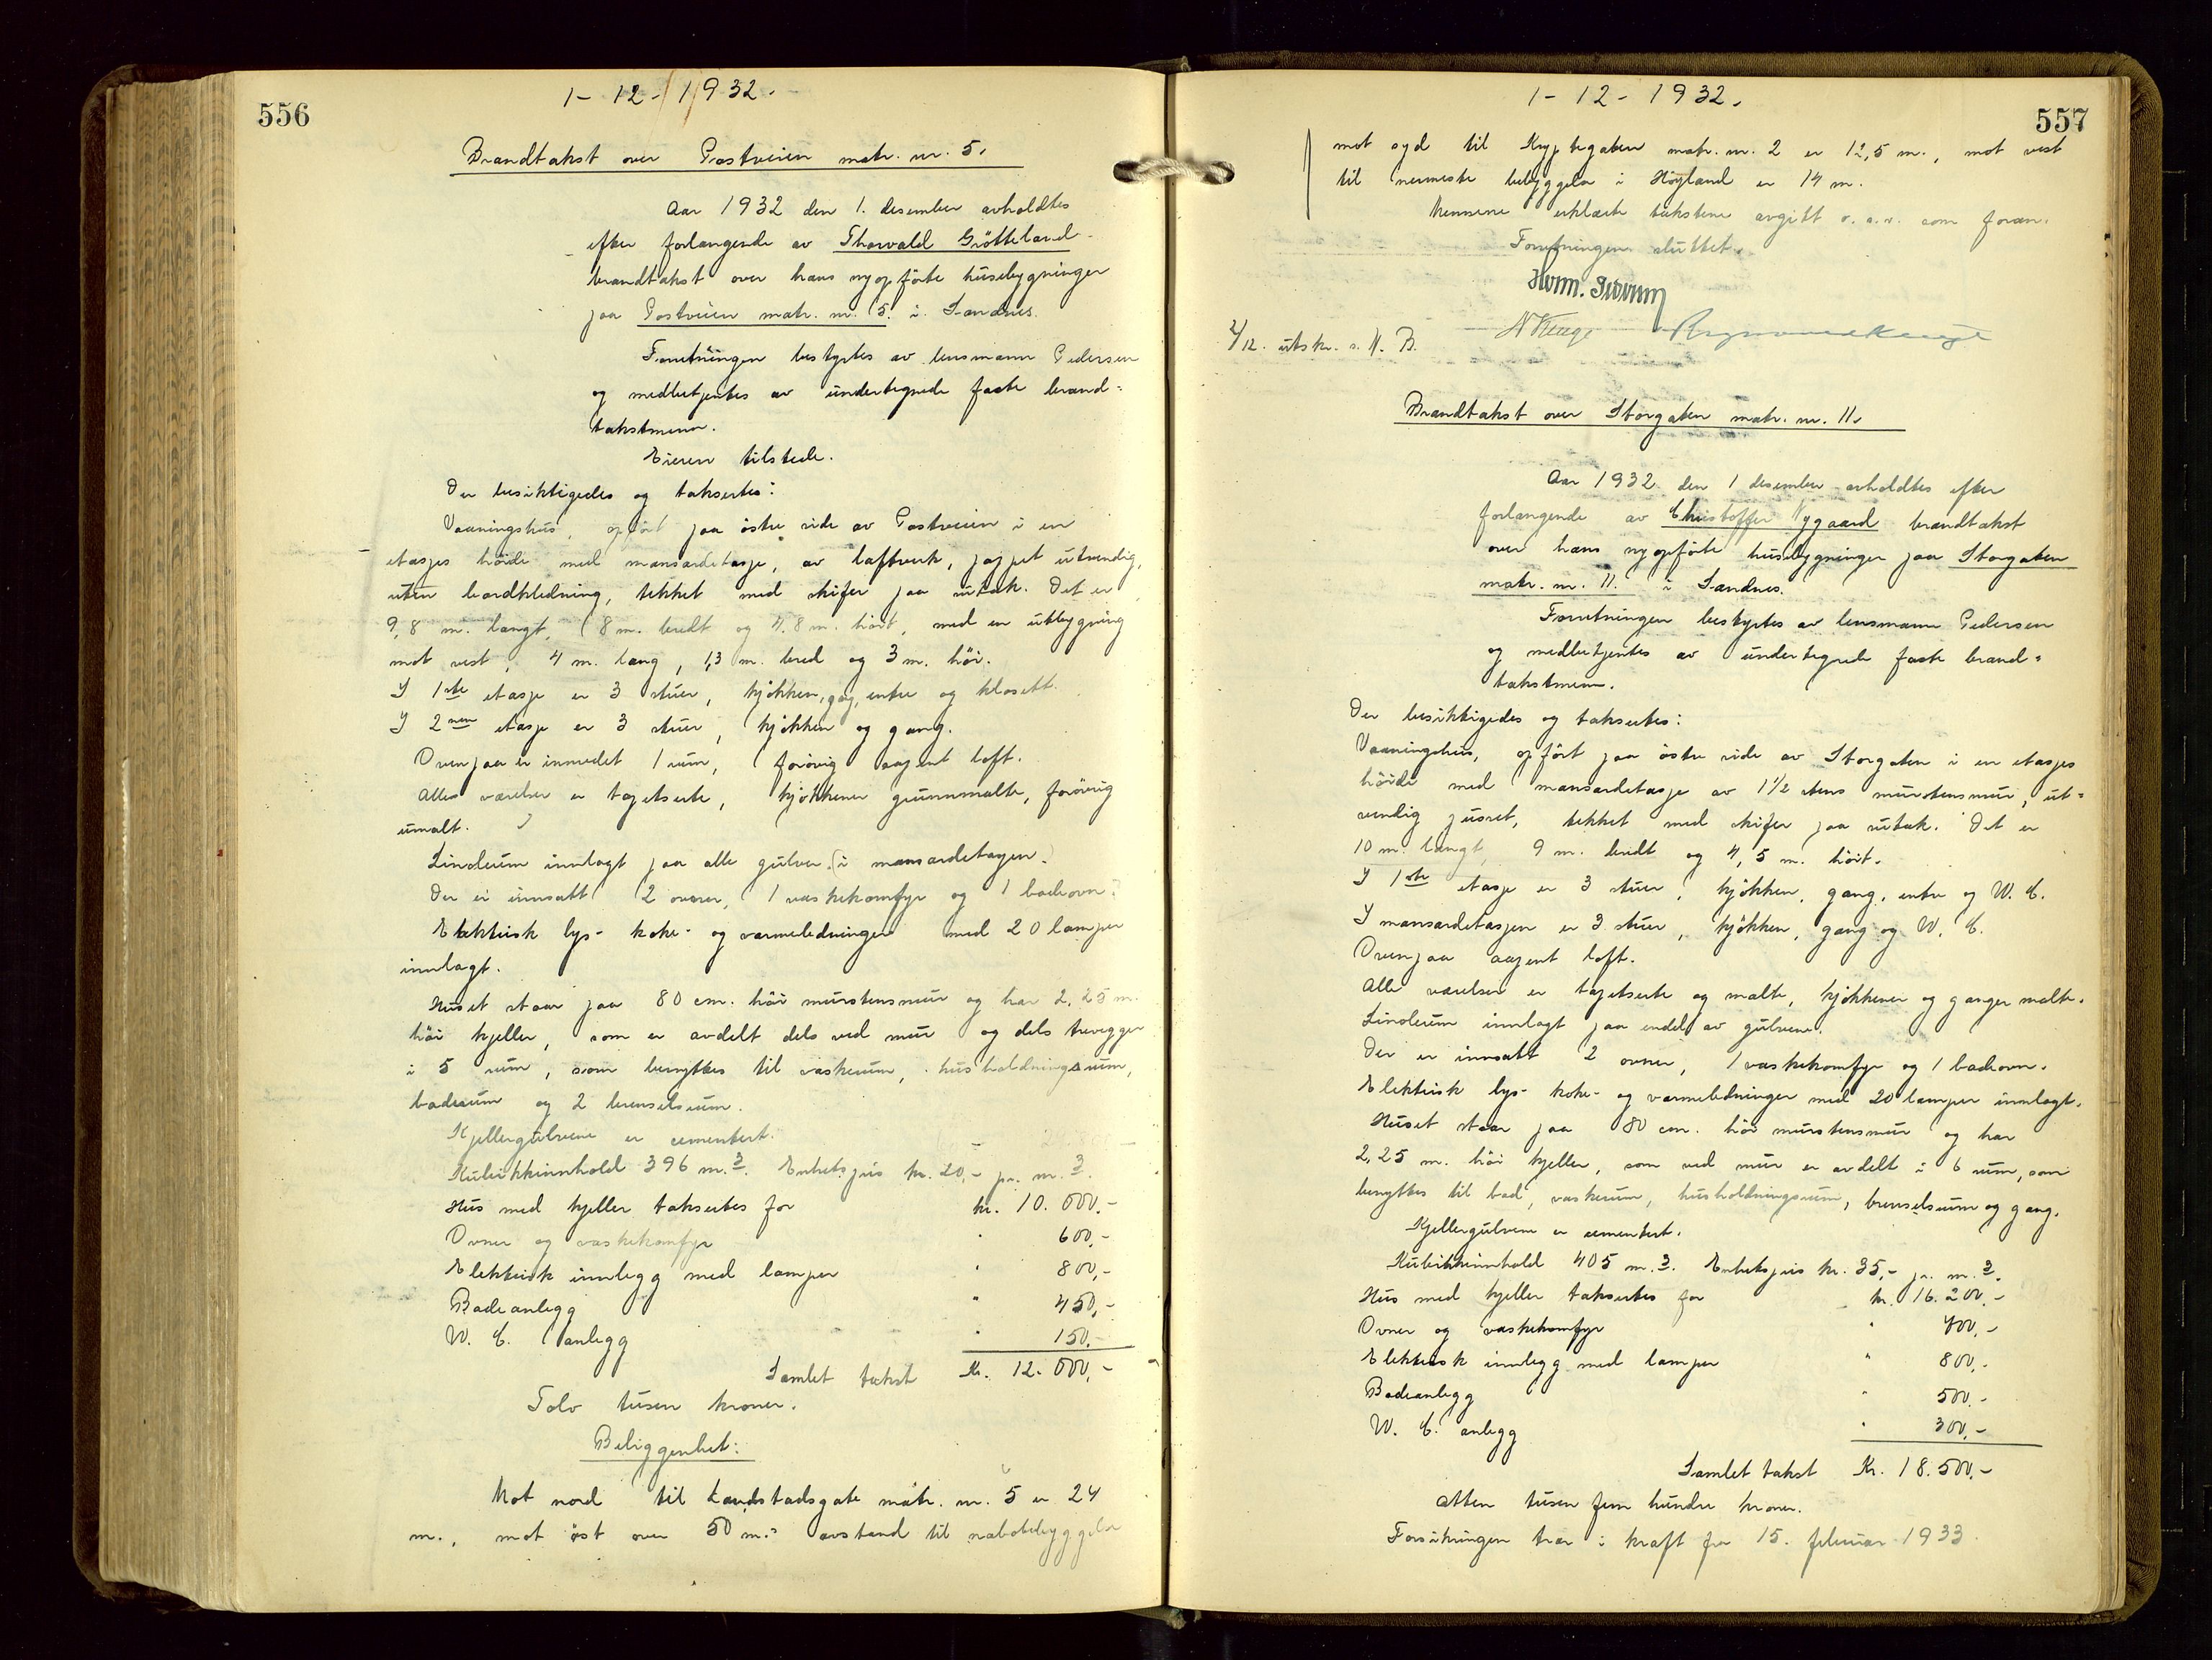 556
1 - 12 - 1932.
Brandtakst over Postveien matr. nr. 5.
Aar 1932 den 1. desember avholdtes
efter forlangende av Thorvald Grötteland
brandtakst over hans nyopförte husebygninger
paa Postveien matr. nr. 5. i Sandnes.
Forretningen bestyrtes av lensmann Pedersen
og medbetjentes av undertegnede faste brand-
takstmenn.
Eieren tilstede.
Der besiktigedes og taksertes:
Vaaningshus, opfört paa östre side av Postveien i en
etasjes höide med mansardetasje, av laftverk, pappet utvendig,
uten bordkledning, tekket med skifer paa sutak. Det er
9,8 m. langt, 8 m. bredt og 4,8 m. höit, med en utbygning
mot vest, 4 m. lang, 1,3 m. bred og 3 m. höi.
I 1ste etasje er 3 stuer, kjökken, gag, entre og klosett.
I 2nen etasje er 3 stuer, kjökken og gang.
Ovenpaa er innredet 1 rum, forövrig aapent loft.
Alles værelser er tapetserte, kjökkener grunnmalte, forövrig
umalt.
Linoleum innlagt paa alle gulver (i mansardetagen.)
Der er innsatt 2 ovner, 1 vaskekomfyr og 1 badeovn.
Elektrisk lys- koke- og varmeledninger med 20 lamper
innlagt.
Huset staar paa 80 cm. höi murstensmur og har 2,25 m.
höi kjeller, som er avdelt dels ved mur og dels trevegger
i 5 rum, som benyttes til vaskerum, husholdningsrum,
baderum og 2 brenselsrum.
Kjellergulvene er cementert.
Kubikkinnhold 396 m.3. Enhetspris kr. 20,- pr. m.3.
Hus med kjeller taksertes for kr. 10.000,-
Ovner og vaskekomfyr " 600,-
Elektrisk innlegg med lamper " 800,-
Badeanlegg " 450,-
W. C. anlegg " 150,-
Samlet takst Kr. 12.000,-
Tolv tusen kroner.
Beliggenhet:
Mot nord til Landstadsgate matr. nr. 5 er 24
m., mot öst over 50 m.s avstand til nabobebyggelse
557
1 - 12 - 1932.
mot syd til matr. nr. 2 er 12,5 m., mot vest
til nærmeste bebyggelse i Höyland er 14 m.
Mennene erklærte takstene avgitt o. s. v. som foran.
Forretningen sluttet.
Herm.
2/12. utskr. s. N. B.
Brandtakst over Storgaten matr. nr. 11.
Aar 1932 den 1 desember avholdtes efter
forlangende av Christoffer Nygaard brandtakst
over hans nyopförte husebygninger paa Storgaten
matr. nr. 11. i Sandnes.
Forretningen bestyrtes av lensmann Pedersen
og medbetjentes av undertegnede faste brand-
takstmenn.
Der besiktigedes og taksertes:
Vaaningshus, opfört paa östre side av Storgaten i en etasjes
höide med mansardetasje av 1 1/2 stens murstensmur, ut-
vendig pusset, tekket med skifer paa sutak. Det er
10 m. langt, 9 m. bredt og 4,5 m. höit.
I 1ste etasje er 3 stuer, kjökken, gang, entre og W. C.
I mansardetasjen er 3 stuer, kjökken, gang og W. C.
Ovenpaa aapent loft.
Alle værelser er tapetserte og malte, kjökkener og ganger malte.
Linoleum innlagt paa endel av gulvene.
Der er innsatt 2 ovner, 1 vaskekomfyr og 1 badeovn.
Elektrisk lys- koke- og varmeledninger med 20 lamper innlagt.
Huset staar paa 80 cm. höi murstensmur og har
2,25 m. höi kjeller, som ved mur er avdelt i 6 rum, som
benyttes til bad, vaskerum, husholdningsrum, brenselsrum og gang.
Kjellergulvene er cementert.
Kubikkinnhold 405 m.3. Enhetspris kr. 35,- pr. m.3.
Hus med kjeller taksertes for kr. 16.200,-
Ovner og vaskekomfyr " 700,-
Elektrisk innlegg med lamper " 800,-
Badeanlegg " 500,-
W. C. anlegg " 300,-
Samlet takst Kr. 18.500,-
Atten tusen fem hundre kroner.
Forsikringen trær i kraft fra 15. februar 1933.